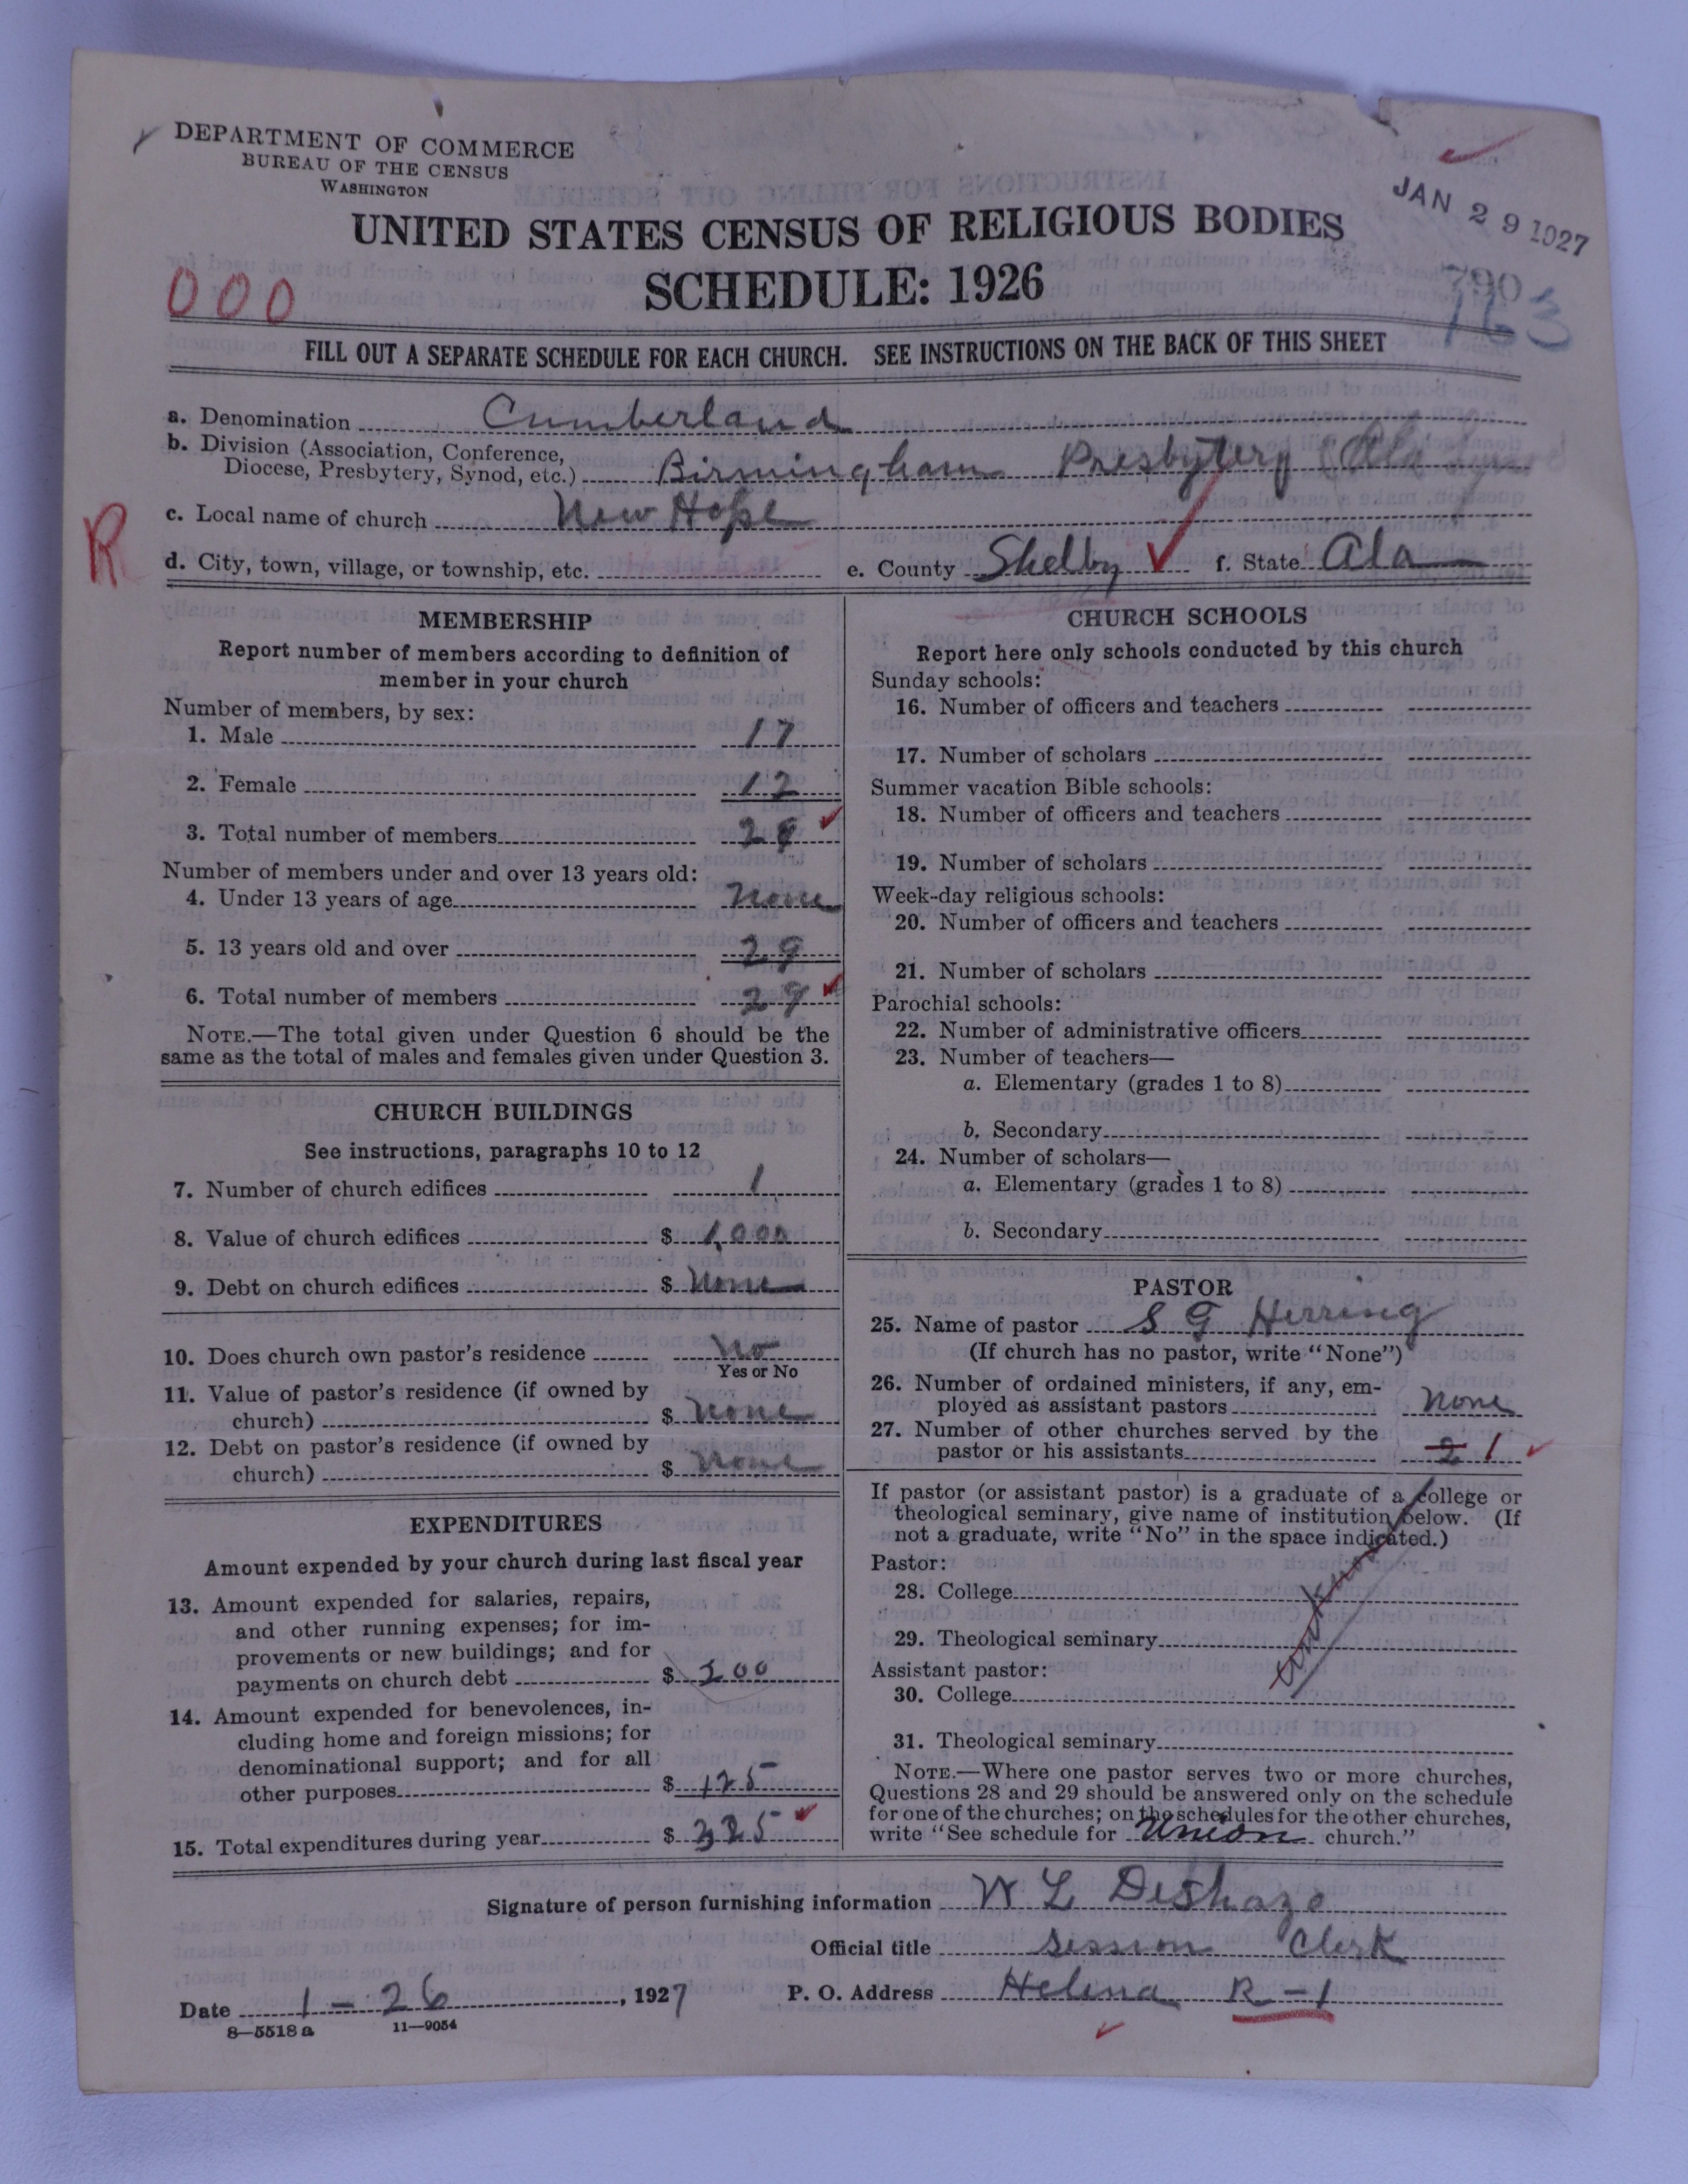 DEPARTMENT OF COMMERCE
BUREAU OF THE CENSUS
WASHINGTON
UNITED STATES CENSUS OF RELIGIOUS BODIES
SCHEDULE: 1926
JAN 29 1927
000
790
163
FILL OUT A SEPARATE SCHEDULE FOR EACH CHURCH. SEE INSTRUCTIONS ON THE BACK OF THIS SHEET
a. Denomination Cumberland
b. Division (Association, Conference,
Diocese, Presbytery, Synod, etc.) Birmingham Presbytery (Ala Synod
c. Local name of church New Hope
R
d. City, town, village, or township, etc. e. County Shelby f. State Ala
MEMBERSHIP
Report number of members according to definition of
member in your church
Number of members, by sex:
1. Male 17
2. Female 12
3. Total number of members 29
Number of members under and over 13 years old:
4. Under 13 years of age None
5. 13 years old and over 29
6. Total number of members 29
NOTE.—The total given under Question 6 should be the
same as the total of males and females given under Question 3.
CHURCH BUILDINGS
See instructions, paragraphs 10 to 12
7. Number of church edifices 1
8. Value of church edifices $ 1,000
9. Debt on church edifices $ None
10. Does church own pastor's residence No
Yes or No
11. Value of pastor's residence (if owned by
church) $ None
12. Debt on pastor's residence (if owned by
church) $ None
EXPENDITURES
Amount expended by your church during last fiscal year
13. Amount expended for salaries, repairs,
and other running expenses; for im-
provements or new buildings; and for
payments on church debt $ 200
14. Amount expended for benevolences, in-
cluding home and foreign missions; for
denominational support; and for all
other purposes $ 125
15. Total expenditures during year $ 325
CHURCH SCHOOLS
Report here only schools conducted by this church
Sunday schools:
16. Number of officers and teachers
17. Number of scholars
Summer vacation Bible schools:
18. Number of officers and teachers
19. Number of scholars
Week-day religious schools:
20. Number of officers and teachers
21. Number of scholars
Parochial schools:
22. Number of administrative officers
23. Number of teachers—
a. Elementary (grades 1 to 8)
b. Secondary
24. Number of scholars—
a. Elementary (grades 1 to 8)
b. Secondary
PASTOR
25. Name of pastor S G Herring
(If church has no pastor, write "None")
26. Number of ordained ministers, if any, em-
ployed as assistant pastors None
27. Number of other churches served by the
pastor or his assistants 2 1
If pastor (or assistant pastor) is a graduate of a college or
theological seminary, give name of institution below. (If
not a graduate, write "No" in the space indicated.)
Pastor:
28. College
29. Theological seminary
Assistant pastor:
30. College
31. Theological seminary
NOTE.—Where one pastor serves two or more churches,
Questions 28 and 29 should be answered only on the schedule
for one of the churches; on the schedules for the other churches,
write "See schedule for Union church."
Signature of person furnishing information W L DeShazo
Official title Session Clerk
Date 1 - 26, 1927 P. O. Address Helena R-1
8—5518 a 11—9054